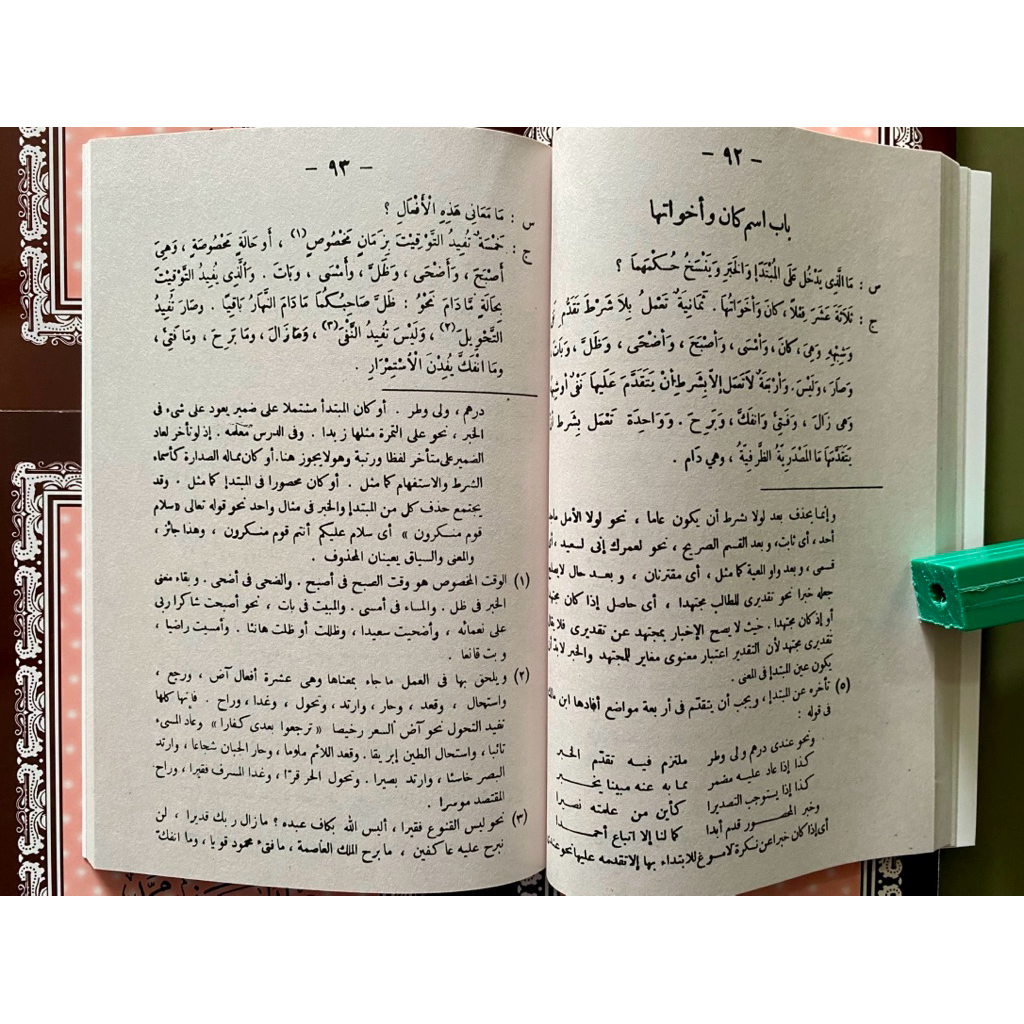 - ٩٢ -
باب اسم كان وأخواتها
س : مَا الَّذِي يَدْخُلُ عَلَى المُبْتَدَإِ وَالْخَبَرِ وَيَنْسَخُ حُكْمَهُمَا ؟
ج : ثَلَاثَةَ عَشَرَ فِعْلًا ، كَانَ وَأَخَوَاتُهَا . ثَمَانِيَةٌ تَعْمَلُ بِلَا شَرْطِ تَقَدُّمِ
وَشِبْهِهِ وَهِىَ ، كَانَ ، وَأَمْسَى ، وَأَصْبَحَ ، وَأَضْحَى ، وَظَلَّ ، وَبَاتَ
وَصَارَ ، وَلَيْسَ . وَأَرْبَعَةٌ لَا تَعْمَلُ إِلَّا بِشَرْطِ أَنْ يَتَقَدَّمَ عَلَيْهَا نَفْىٌ أَوْ
وَهِى زَالَ ، وَفَتِئَ وَانْفَكَّ ، وَبَرِحَ . وَوَاحِدَة تَعْمَلُ بِشَرْطِ
يَتَقَدَّمَهَا مَا المَصْدَرِيَّةُ الظَّرْفِيَّةُ ، وهي دَام .
وإنما يحذف بعد لولا بشرط أن يكون عاما ، نحو لولا الأمل
أحد ، أى ثابت ، وبعد القسم الصريح ، نحو لعمرك إنى لسعيد ،
قسمى ، وبعد واو المعية كما مثل ، أى مقترنان ، وبعد حال
جعله خبرا نحو تقديرى للطالب مجتهدا ، أى حاصل إذا كان
أو إذ كان مجتهدا . حيث لا يصح الإخبار بمجتهد عن تقديرى
تقديرى مجتهد لأن التقدير اعتبار معنوى مغاير للمجتهد والخبر
يكون عين المبتدإ فى المعنى .
(٥) تأخره عن المبتدإ ، ويجب أن يتقدّم فى أربعة مواضع أفادها ابن
فى قوله :
ونحو عندى درهم ولى وطر ملتزم فيه تقدّم الخبر
كذا إذا عاد عليه مضمر مما به عنه مبينا يخبر
كذا إذا يستوجب التصديرا كأين من علمته نصيرا
وخبر المحصور قدم أبدا كما لنا إلا اتباع أحمدا
أى إذا كان خبرا عن نكرة لا مسوغ للابتداء بها إلا تقدمه عليها نحو عندى
- ٩٣ -
س : مَا مَعَانِى هَذِهِ الْأَفْعَالِ ؟
ج : خَمْسَةٌ تُفِيدُ التَّوْقِيتَ بِزَمَانٍ مَخْصُوصٍ(١) ، أَو حَالَةٍ مَخْصُوصَةٍ ، وَهِىَ
أَصْبَحَ ، وَأَضْحَى ، وَظَلَّ ، وَأَمْسَى ، وَبَاتَ . وَالَّذِى يُفِيدُ التَّوْقِيتَ
بِحَالَةٍ مَّا دَامَ نَحْوُ : ظَلَّ صَاحِبُكُمَا مَادَامَ النَّهَارُ بَاقِيًا . وصَارَ تُفِيدُ
التَّحْوِيلَ(٢) ، وَلَيْسَ تُفِيدُ النَّفْىَ(٣) ، وَمَازَالَ ، ومَا بَرِحَ ، ومَا فَتِئَ ،
ومَا انْفَكَّ يُفِدْنَ الْاسْتِمْرَارِ .
درهم ، ولى وطر . أو كان المبتدأ مشتملا على ضمير يعود على شىء فى
الخبر ، نحو على التمرة مثلها زبدا . وفى الدرس معلمه . إذ لو تأخر لعاد
الضمير على متأخر لفظا ورتبة وهو لا يجوز هنا . أو كان مما له الصدارة كأسماء
الشرط والاستفهام كما مثل . أو كان محصورا فى المبتدإ كما مثل . وقد
يجتمع حذف كل من المبتدإ والخبر فى مثال واحد نحو قوله تعالى «سلام
قوم منكرون » أى سلام عليكم أنتم قوم منكرون ، وهذا جائز ،
والمعنى والسياق يعينان المحذوف .
(١) الوقت المخصوص هو وقت الصبح فى أصبح . والضحى فى أضحى . وبقاء معنى
الخبر فى ظل . والمساء فى أمسى . والمبيت فى بات ، نحو أصبحت شاكرا ربى
على نعمائه ، وأضحيت سعيدا ، وظللت أو ظلت هانئا . وأمسيت راضيا ،
وبت قانعا .
(٢) ويلحق بها فى العمل ما جاء بمعناها وهى عشرة أفعال آض ، ورجع ،
واستحال ، وقعد ، وحار ، وارتد ، وتحول ، وغدا ، وراح . فإنها كلها
تفيد التحول نحو آض السعر رخيصا «ترجعوا بعدى كفارا» وعاد المسىء
تائبا ، واستحال الطين إبريقا . وقعد اللائم ملاما ، وحار الجبان شجاعا ، وارتد
البصر خاسئا ، وارتد بصيرا . وتحول الحر قرًا ، وغدا المسرف فقيرا ، وراح
المقتصد موسرا .
(٣) نحو ليس القنوع فقيرا ، أليس الله بكاف عبده ؟ مازال ربك قديرا ، لن
نبرح عليه عاكفين ، مابرح الملك العاصمة ، مافتىء محمود قويا ، وما انفك